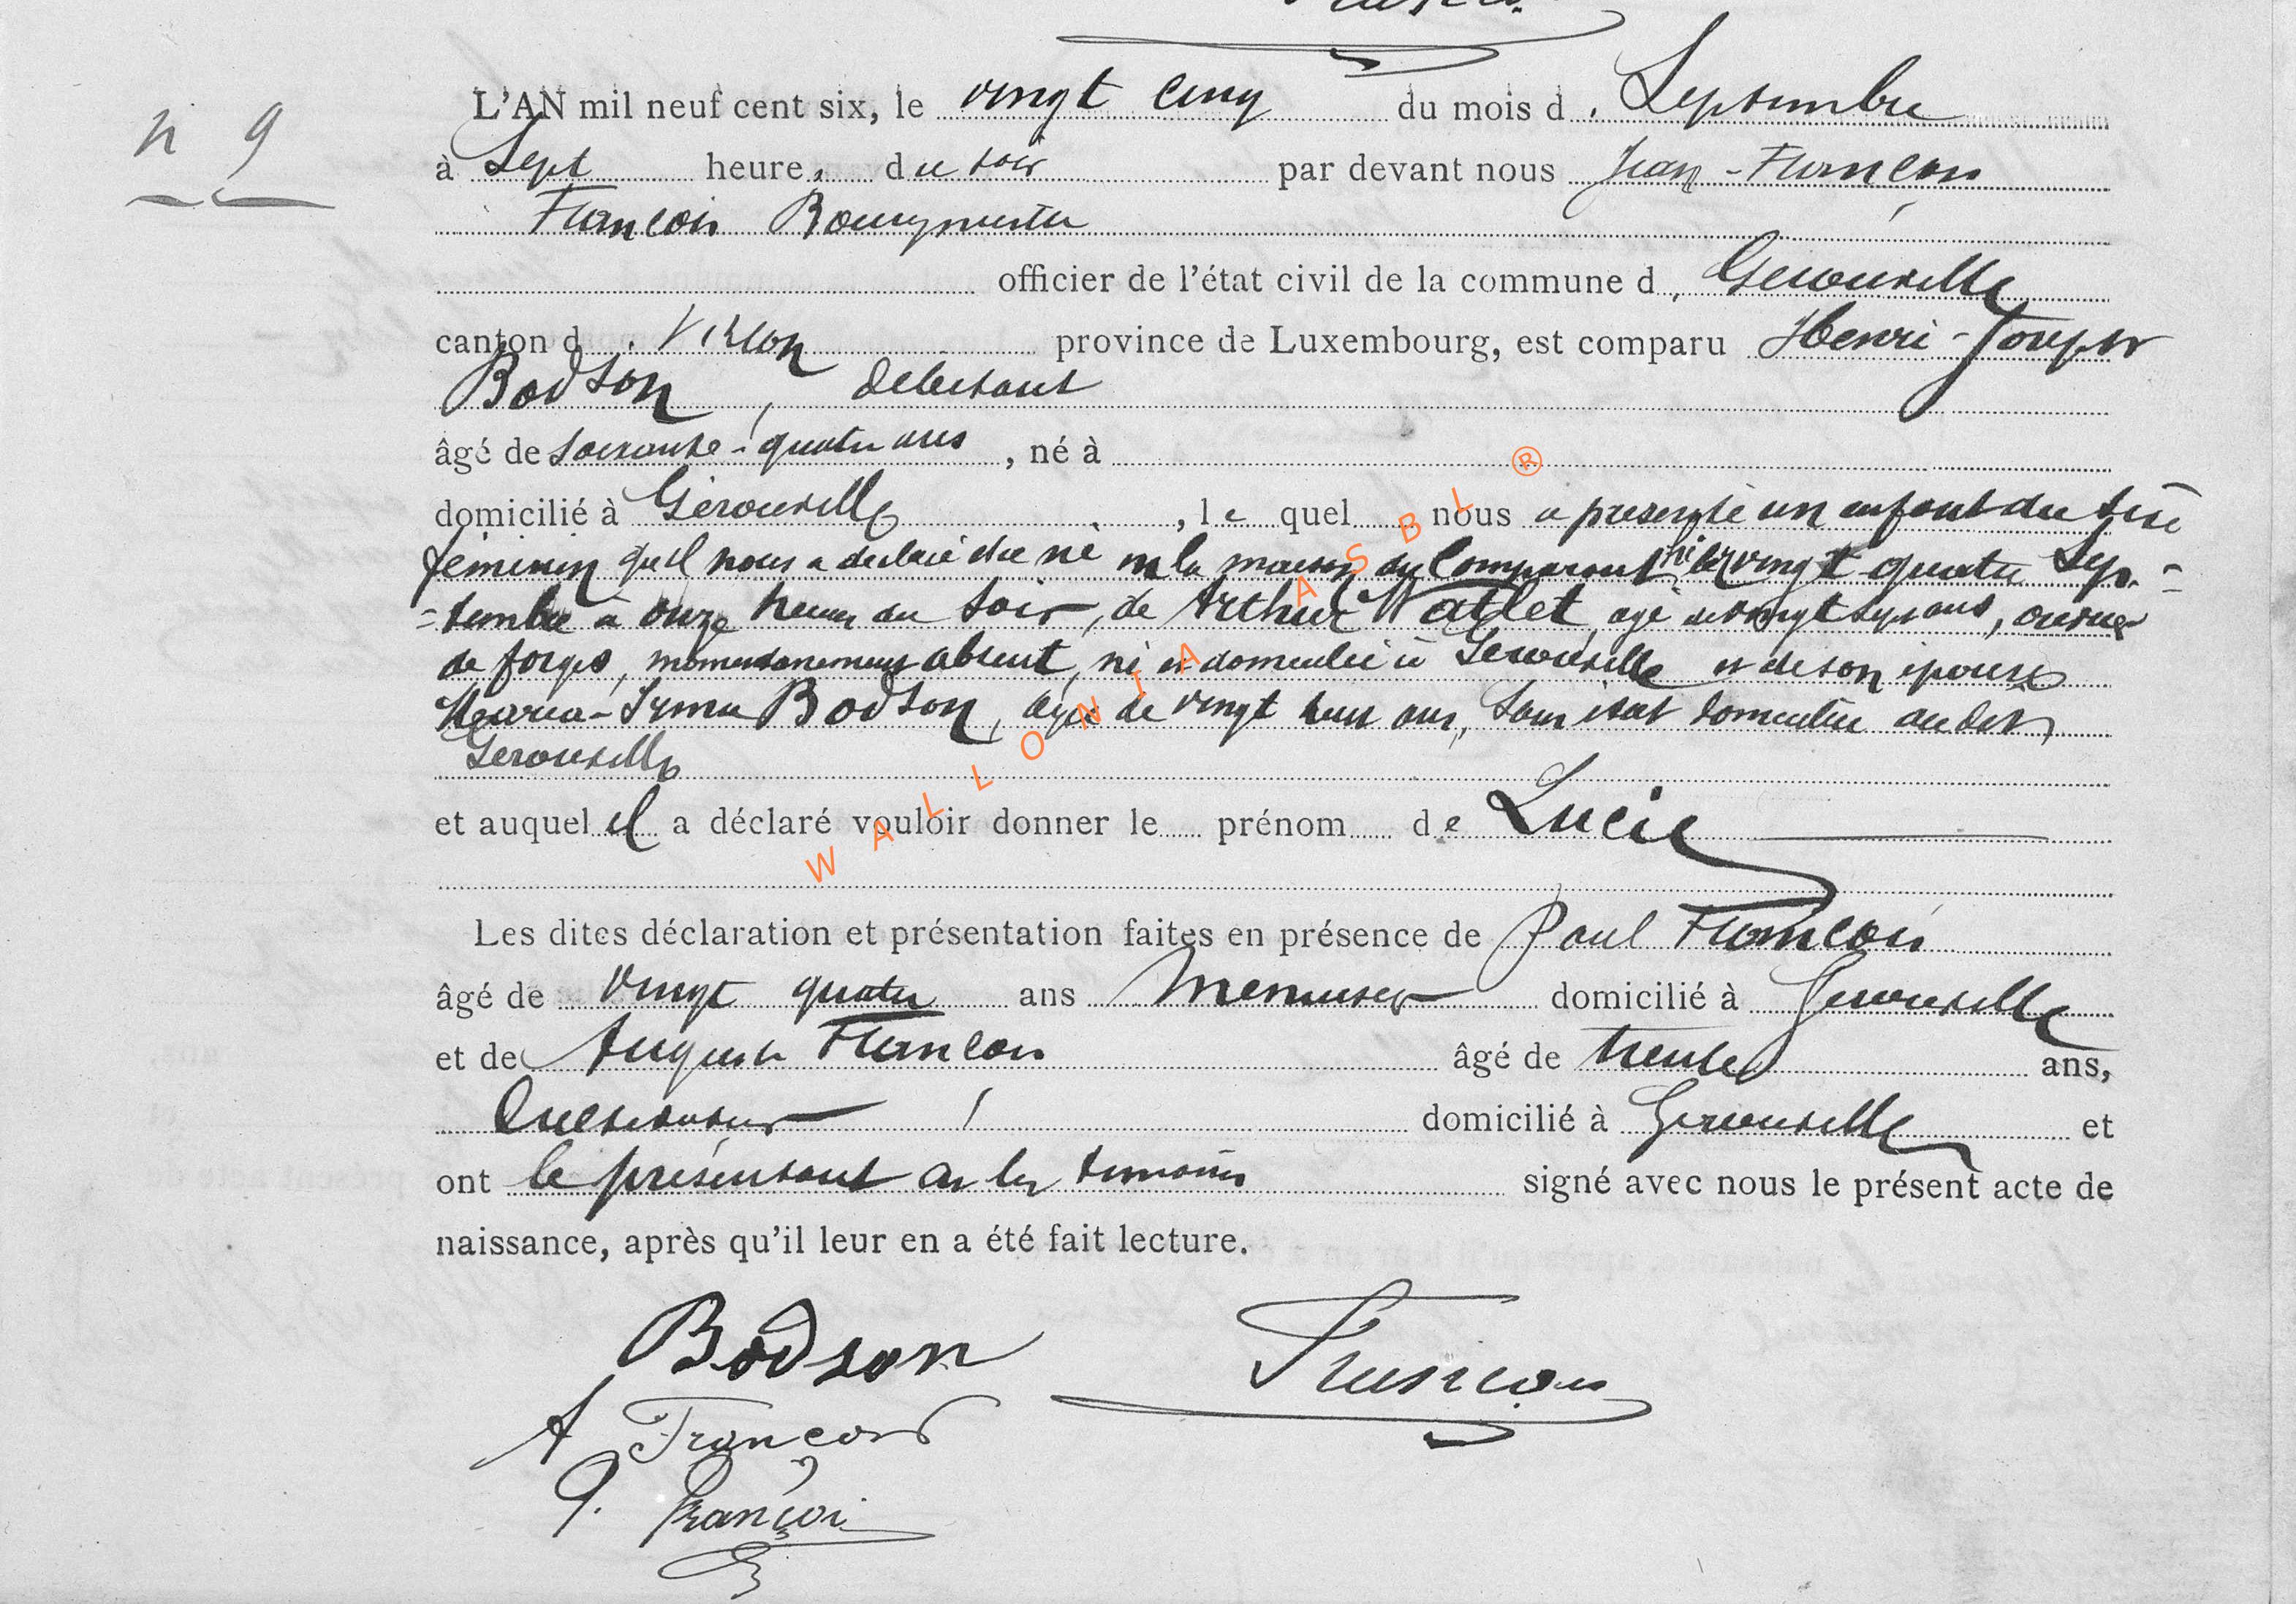 n 9
L'AN mil neuf cent six, le vingt cinq du mois de Septembre
à Sept heures du soir par devant nous Jean-François
François Bourgmestre
officier de l'état civil de la commune de Gérouville
canton de Virton province de Luxembourg, est comparu Henri-Joseph
Bodson, débitant
âgé de soixante-quatre ans, né à
domicilié à Gérouville, le quel nous a présenté un enfant du sexe
féminin qu'il nous a déclaré être né en la maison du comparant hier vingt quatre Sep-
-tembre à onze heures du soir, de Arthur Watlet, agé de vingt sept ans, ouvrier
de forges, momentanement absent, né et domicilié à Gerouville et de son épouse
Maria-Irma Bodson, agée de vingt huit ans, sans état domiciliée au dit
Gerouville
et auquel il a déclaré vouloir donner le prénom de Lucie
Les dites déclaration et présentation faites en présence de Paul François
âgé de vingt quatre ans Menuisier domicilié à Gerouville
et de Auguste François âgé de trente ans,
Cultivateur domicilié à Gerouville et
ont le présentant et les temoins signé avec nous le présent acte de
naissance, après qu'il leur en a été fait lecture.
Bodson François
A François
P. François
WALLONIA ASBL ®